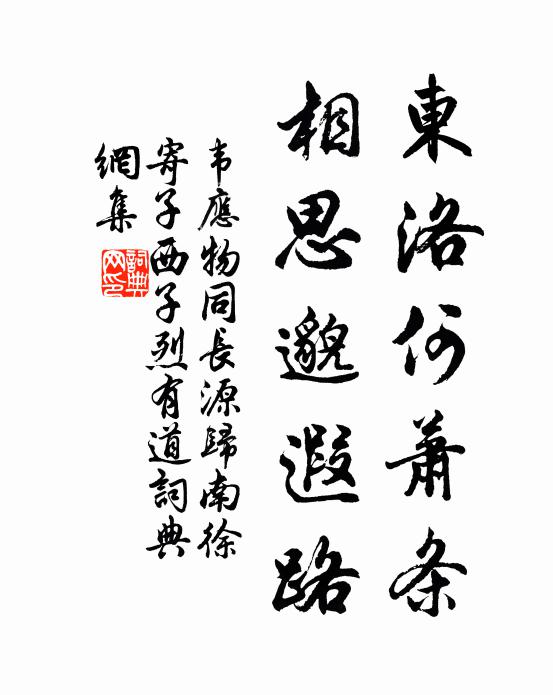 東洛何蕭条
相思邈遐路
韦應物同長源歸南徐
寄子西子烈有道詞典
網集
詞典網印